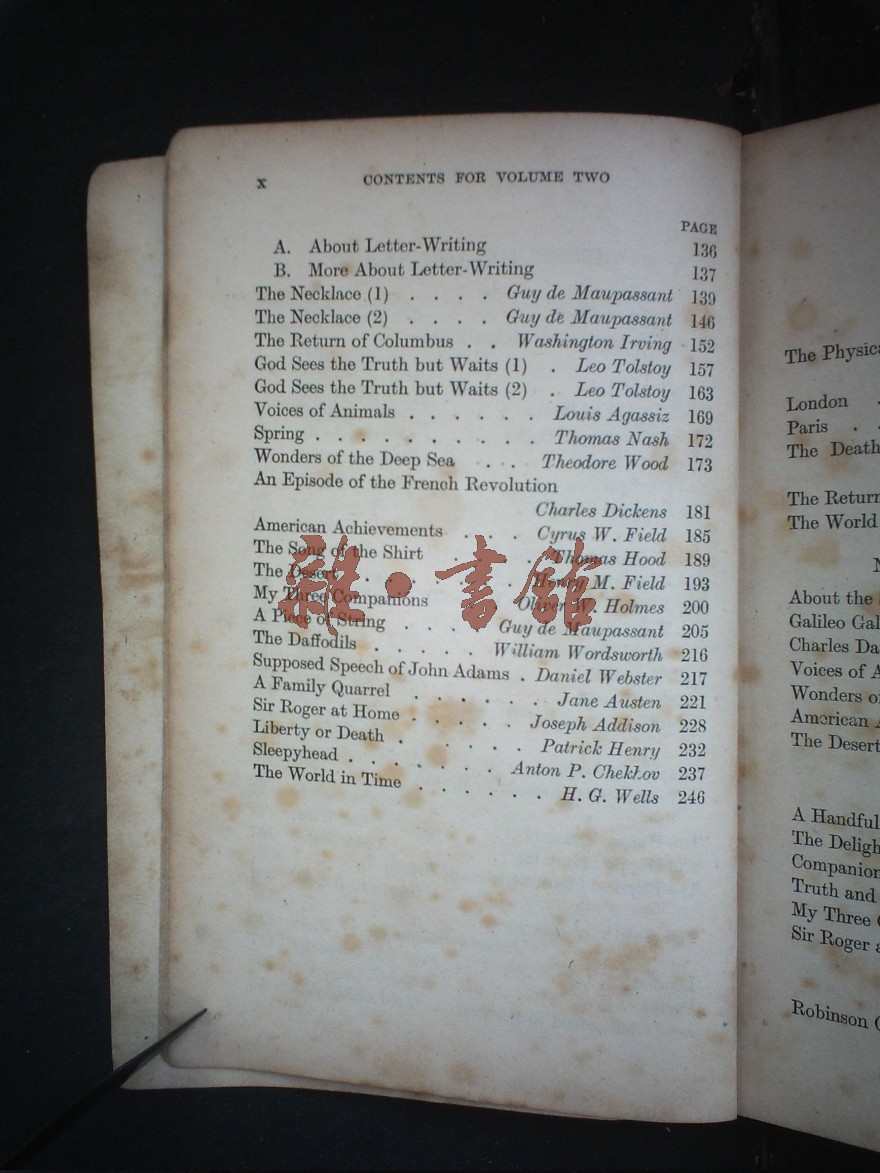 x CONTENTS FOR VOLUME TWO
PAGE
A. About Letter-Writing 136
B. More About Letter-Writing 137
The Necklace (1) . . . . Guy de Maupassant 139
The Necklace (2) . . . . Guy de Maupassant 146
The Return of Columbus . . Washington Irving 152
God Sees the Truth but Waits (1) . Leo Tolstoy 157
God Sees the Truth but Waits (2) . Leo Tolstoy 163
Voices of Animals . . . . . . Louis Agassiz 169
Spring . . . . . . . . . . Thomas Nash 172
Wonders of the Deep Sea . . . Theodore Wood 173
An Episode of the French Revolution
Charles Dickens 181
American Achievements . . . Cyrus W. Field 185
The Song of the Shirt . . . . Thomas Hood 189
The Desert . . . . . . Henry M. Field 193
My Three Companions . . Oliver W. Holmes 200
A Piece of String . . . . Guy de Maupassant 205
The Daffodils . . . . . William Wordsworth 216
Supposed Speech of John Adams . Daniel Webster 217
A Family Quarrel . . . . . . Jane Austen 221
Sir Roger at Home . . . . . Joseph Addison 228
Liberty or Death . . . . . Patrick Henry 232
Sleepyhead . . . . . . . Anton P. Chekhov 237
The World in Time . . . . . . H. G. Wells 246
雜·書館
The
London
Paris . .
The Death
The
The World
About the
Galileo
Charles
Voices of
Wonders
American
The Desert
A
The
Truth and
My Three
Sir Roger
Robinson